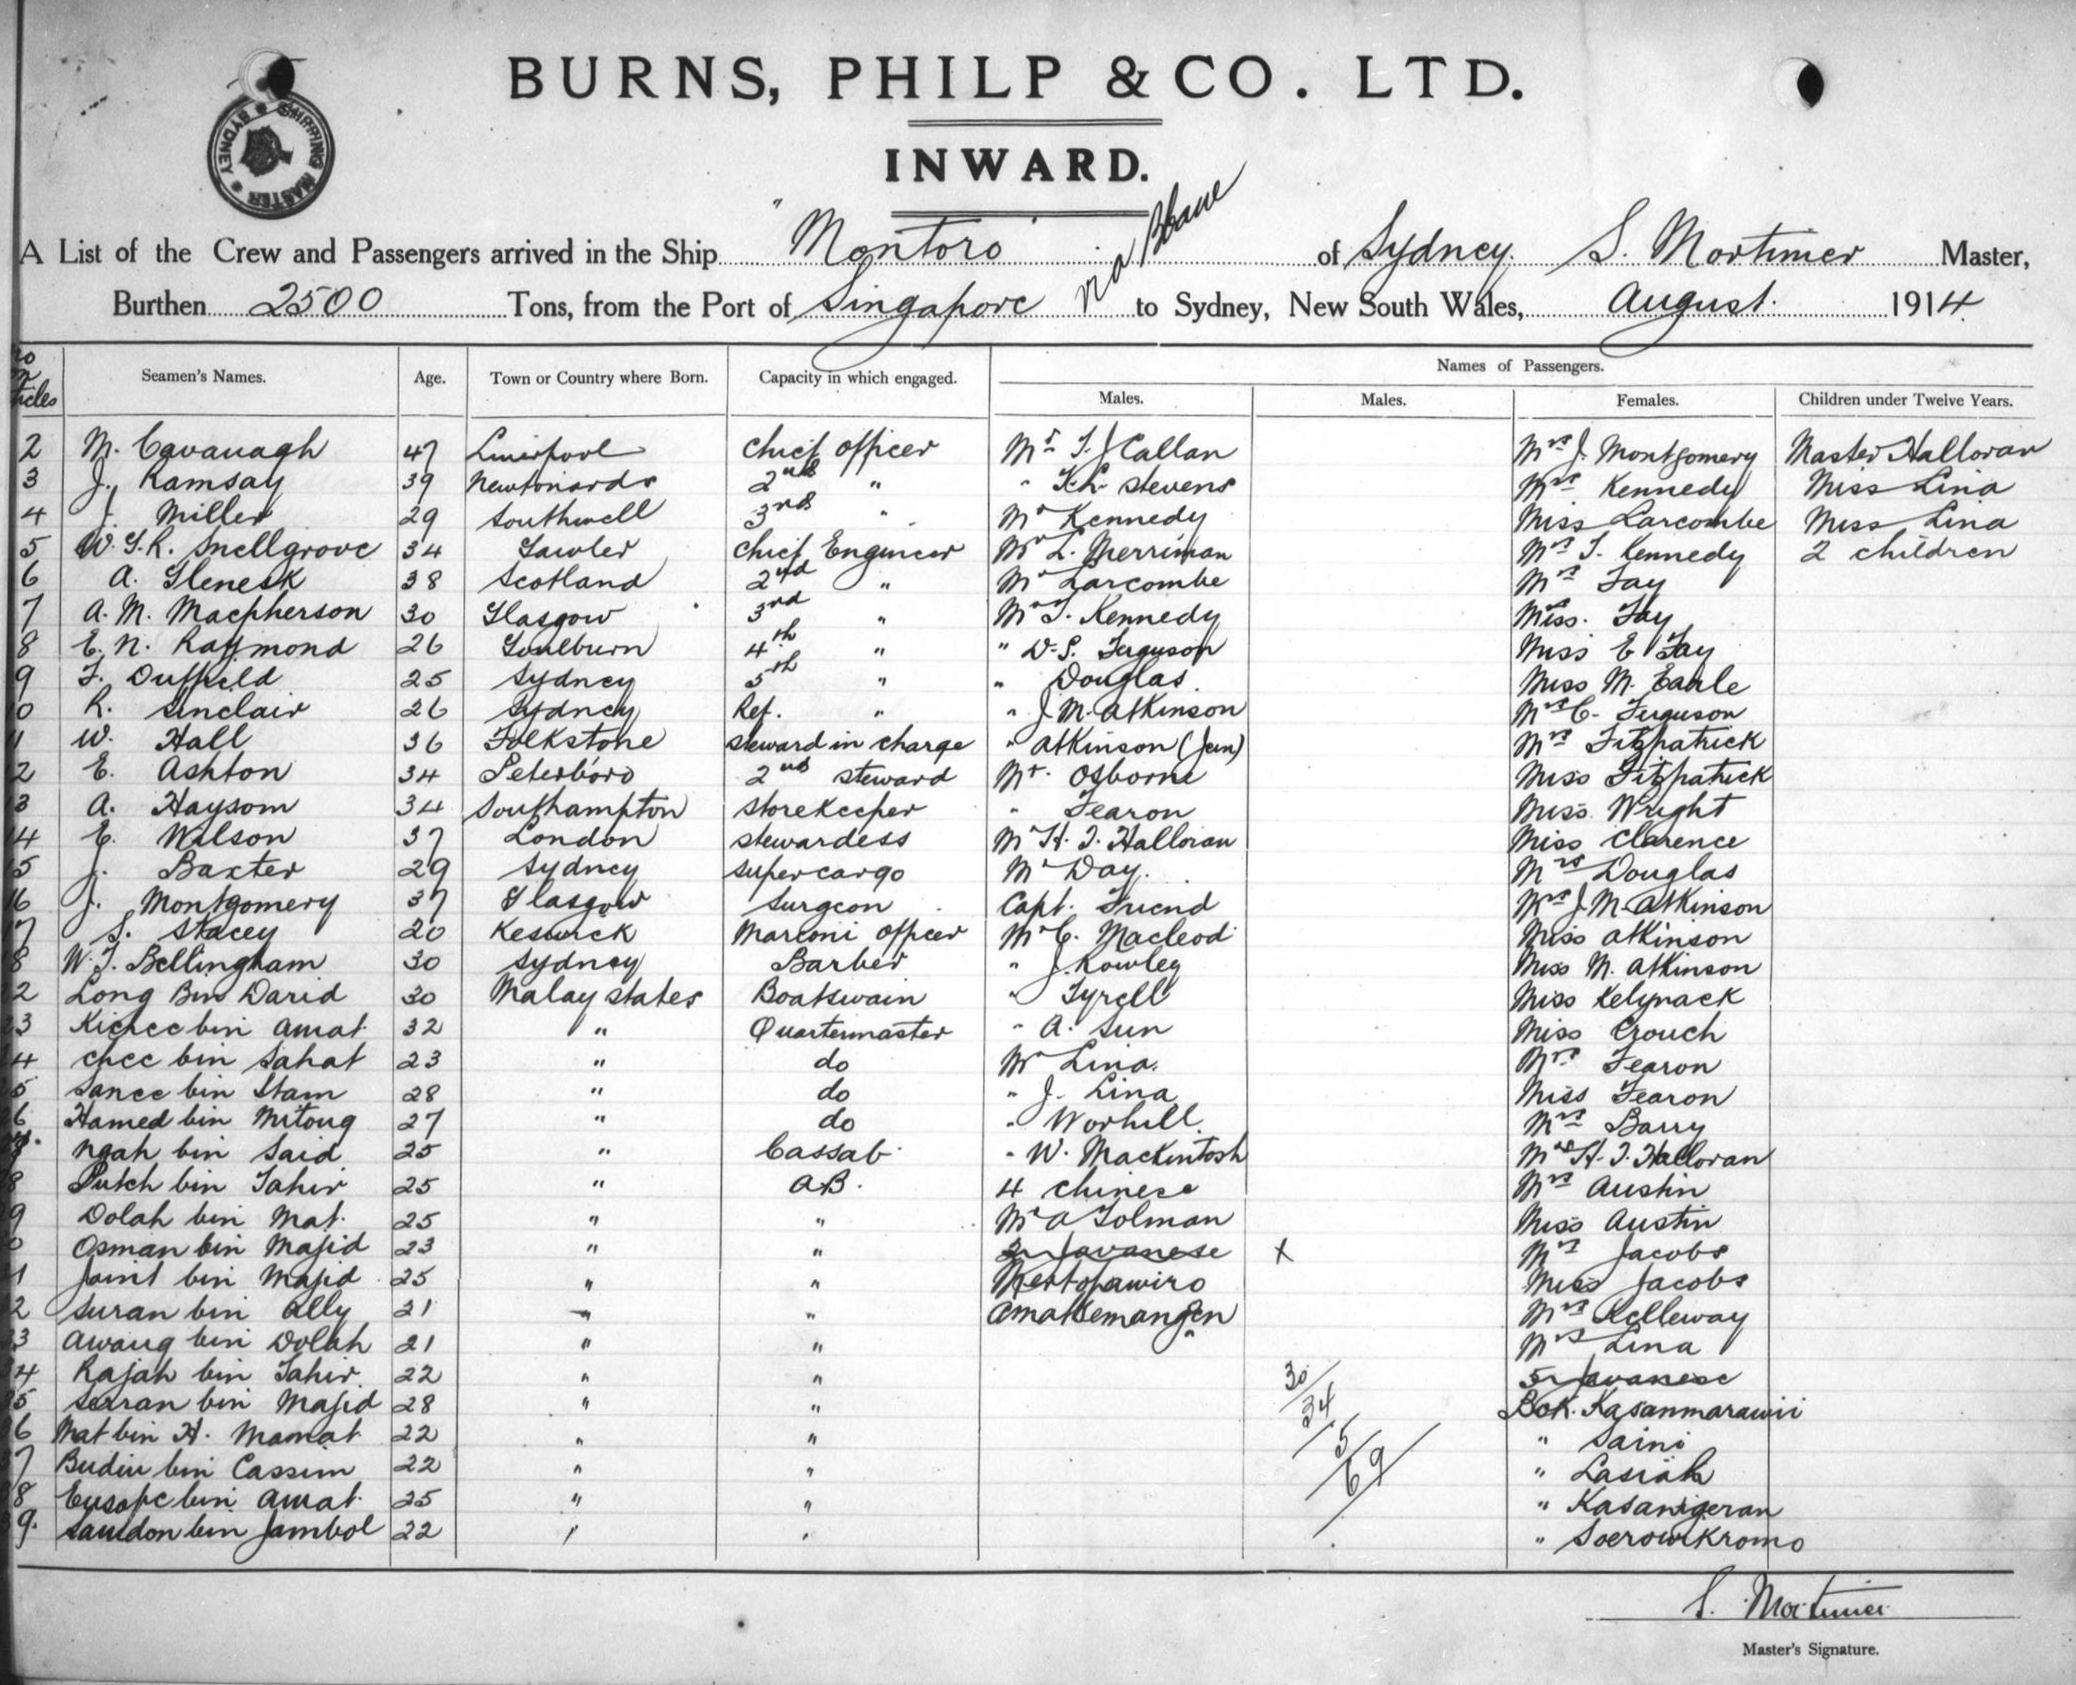 BURNS, PHILP & CO. LTD.
INWARD.
SHIPPING MASTER SYDNEY
A List of the Crew and Passengers arrived in the Ship "Montoro" via Bbane of Sydney. S. Mortimer Master,
Burthen 2500 Tons, from the Port of Singapore to Sydney, New South Wales, August 1914
Seamen's Names. Age. Town or Country where Born. Capacity in which engaged. Names of Passengers.
Males. Males. Females. Children under Twelve Years.
2 M. Cavanagh 47 Liverpool Chief officer Mr T. J Callan Mrs J. Montgomery Master Halloran
3 J. Ramsay 39 Newtonards 2nd " " Stevens Mrs Kennedy Miss Lina
4 J. Miller 29 Southwell 3rd " Mr Kennedy Miss Larcombe Miss Lina
5 W. G. R. Snellgrove 34 Gawler Chief Engineer Mr L. Merriman Mrs T. Kennedy 2 children
6 A. Glenesk 38 Scotland 2nd " Mr Larcombe Mrs Fay
7 A. M. Macpherson 30 Glasgow 3rd " Mr T. Kennedy Miss. Fay
8 E. N. Raymond 26 Goulburn 4th " " D. S. Ferguson Miss E Fay
9 F. Duffield 25 Sydney 5th " " Douglas Miss M. Earle
10 R. Sinclair 26 Sydney Ref. " " J. M. Atkinson Mrs C. Ferguson
11 W. Hall 36 Folkstone Steward in charge " Atkinson (Jun) Mrs Fitzpatrick
12 E. Ashton 34 Peterboro 2nd Steward Mr. Osborne Miss Fitzpatrick
13 A. Haysom 34 Southampton Storekeeper " Fearon Miss Wright
14 E. Wilson 37 London Stewardess Mr H. F. Halloran Miss Clarence
15 J. Baxter 29 Sydney Supercargo Mr Day. Mrs Douglas
16 J. Montgomery 37 Glasgow Surgeon Capt. Friend Mrs J. M. Atkinson
17 S. Stacey 20 Keswick Marconi officer Mr C. Macleod Miss Atkinson
18 W. T. Bellingham 30 Sydney Barber " J. Rowley Miss M. Atkinson
22 Long Bin Darid 30 Malay States Boatswain " Tyrell Miss Kelynack
23 Kichee bin Amat 32 " Quartermaster " A. Sun Miss Crouch
24 Chee bin Sahat 23 " do Mr Lina. Mrs Fearon
25 Sanee bin Stam 28 " do " J. Lina Miss Fearon
26 Hamed bin Mitoug 27 " do " Worhill. Mrs Barry
Ngah bin Said 25 " Cassab " W. Mackintosh Mrs H. F. Halloran
28 Puteh bin Tahir 25 " A.B. 4 Chinese Mrs Austin
29 Dolah bin Mat. 25 " " Mr A Tolman Miss Austin
30 Osman bin Majid 23 " " 2 Javanese X Mrs Jacobs
31 Jainl bin Majid 25 " " Mertopawiro Miss Jacobs
32 Suran bin Ally 21 " " Amatsemangen Mrs Kelleway
33 Awang bin Dolah 21 " " Mrs Lina
34 Rajah bin Tahir 22 " " 30 5 Javanese
35 Serran bin Majid 28 " " 34 Bok. Kasanmarawii
36 Mat bin H. Mamat 22 " " 5 " Saini
37 Budin bin Cassim 22 " " 69 " Lasiah
38 Eusope bin Amat 25 " " " Kasanigeran
39. Saudon bin Jambol 22 " " " Soerowikromo
S. Mortimer
Master's Signature.